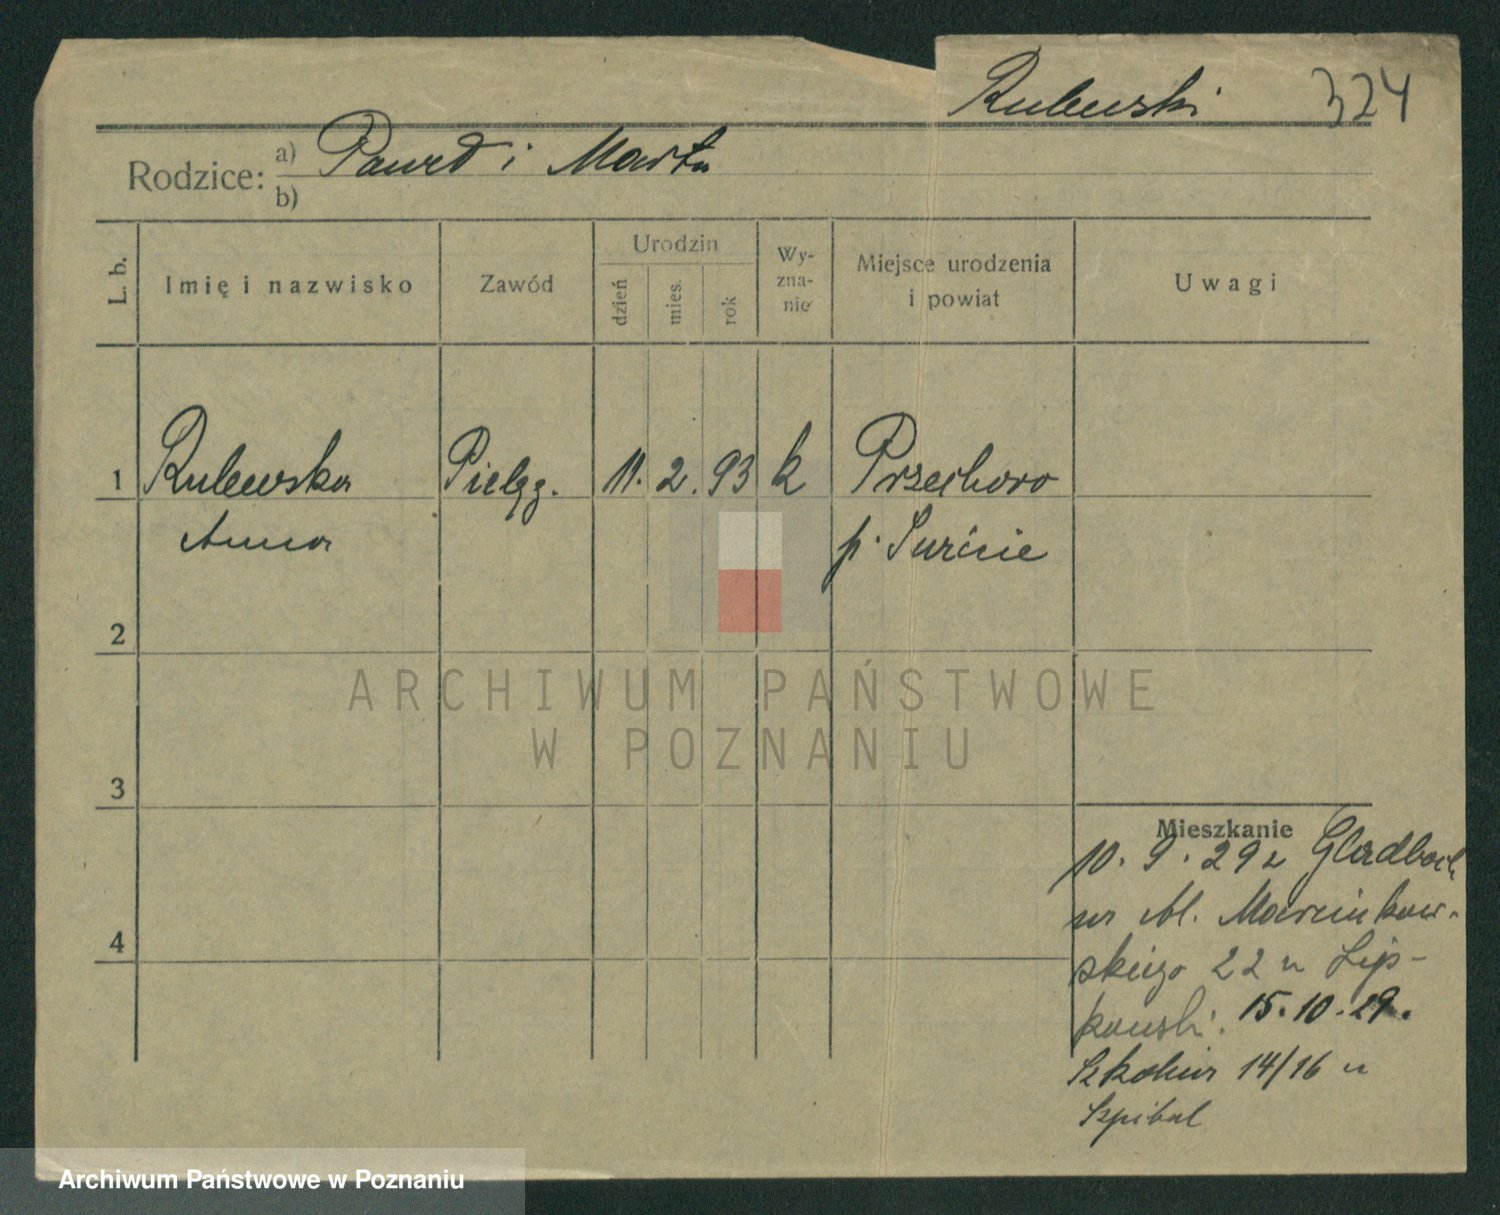 Rulewski 324
Rodzice: a) Paweł i Marta
b)
L. b. Imię i nazwisko Zawód Urodzin dzień mies. rok Wy-zna-nie Miejsce urodzenia i powiat Uwagi
1 Rulewska Pielęg. 11. 2. 93 k Przechowo
Anna p. Świecie
2
ARCHIWUM PAŃSTWOWE
W POZNANIU
3
Mieszkanie
10. 9. 29 z Gladbach
na Al. Marcinkow-
skiego 22 u Lip-
kowski. 15. 10. 29.
4
Szkolna 14/16 u
Szpital
Archiwum Państwowe w Poznaniu